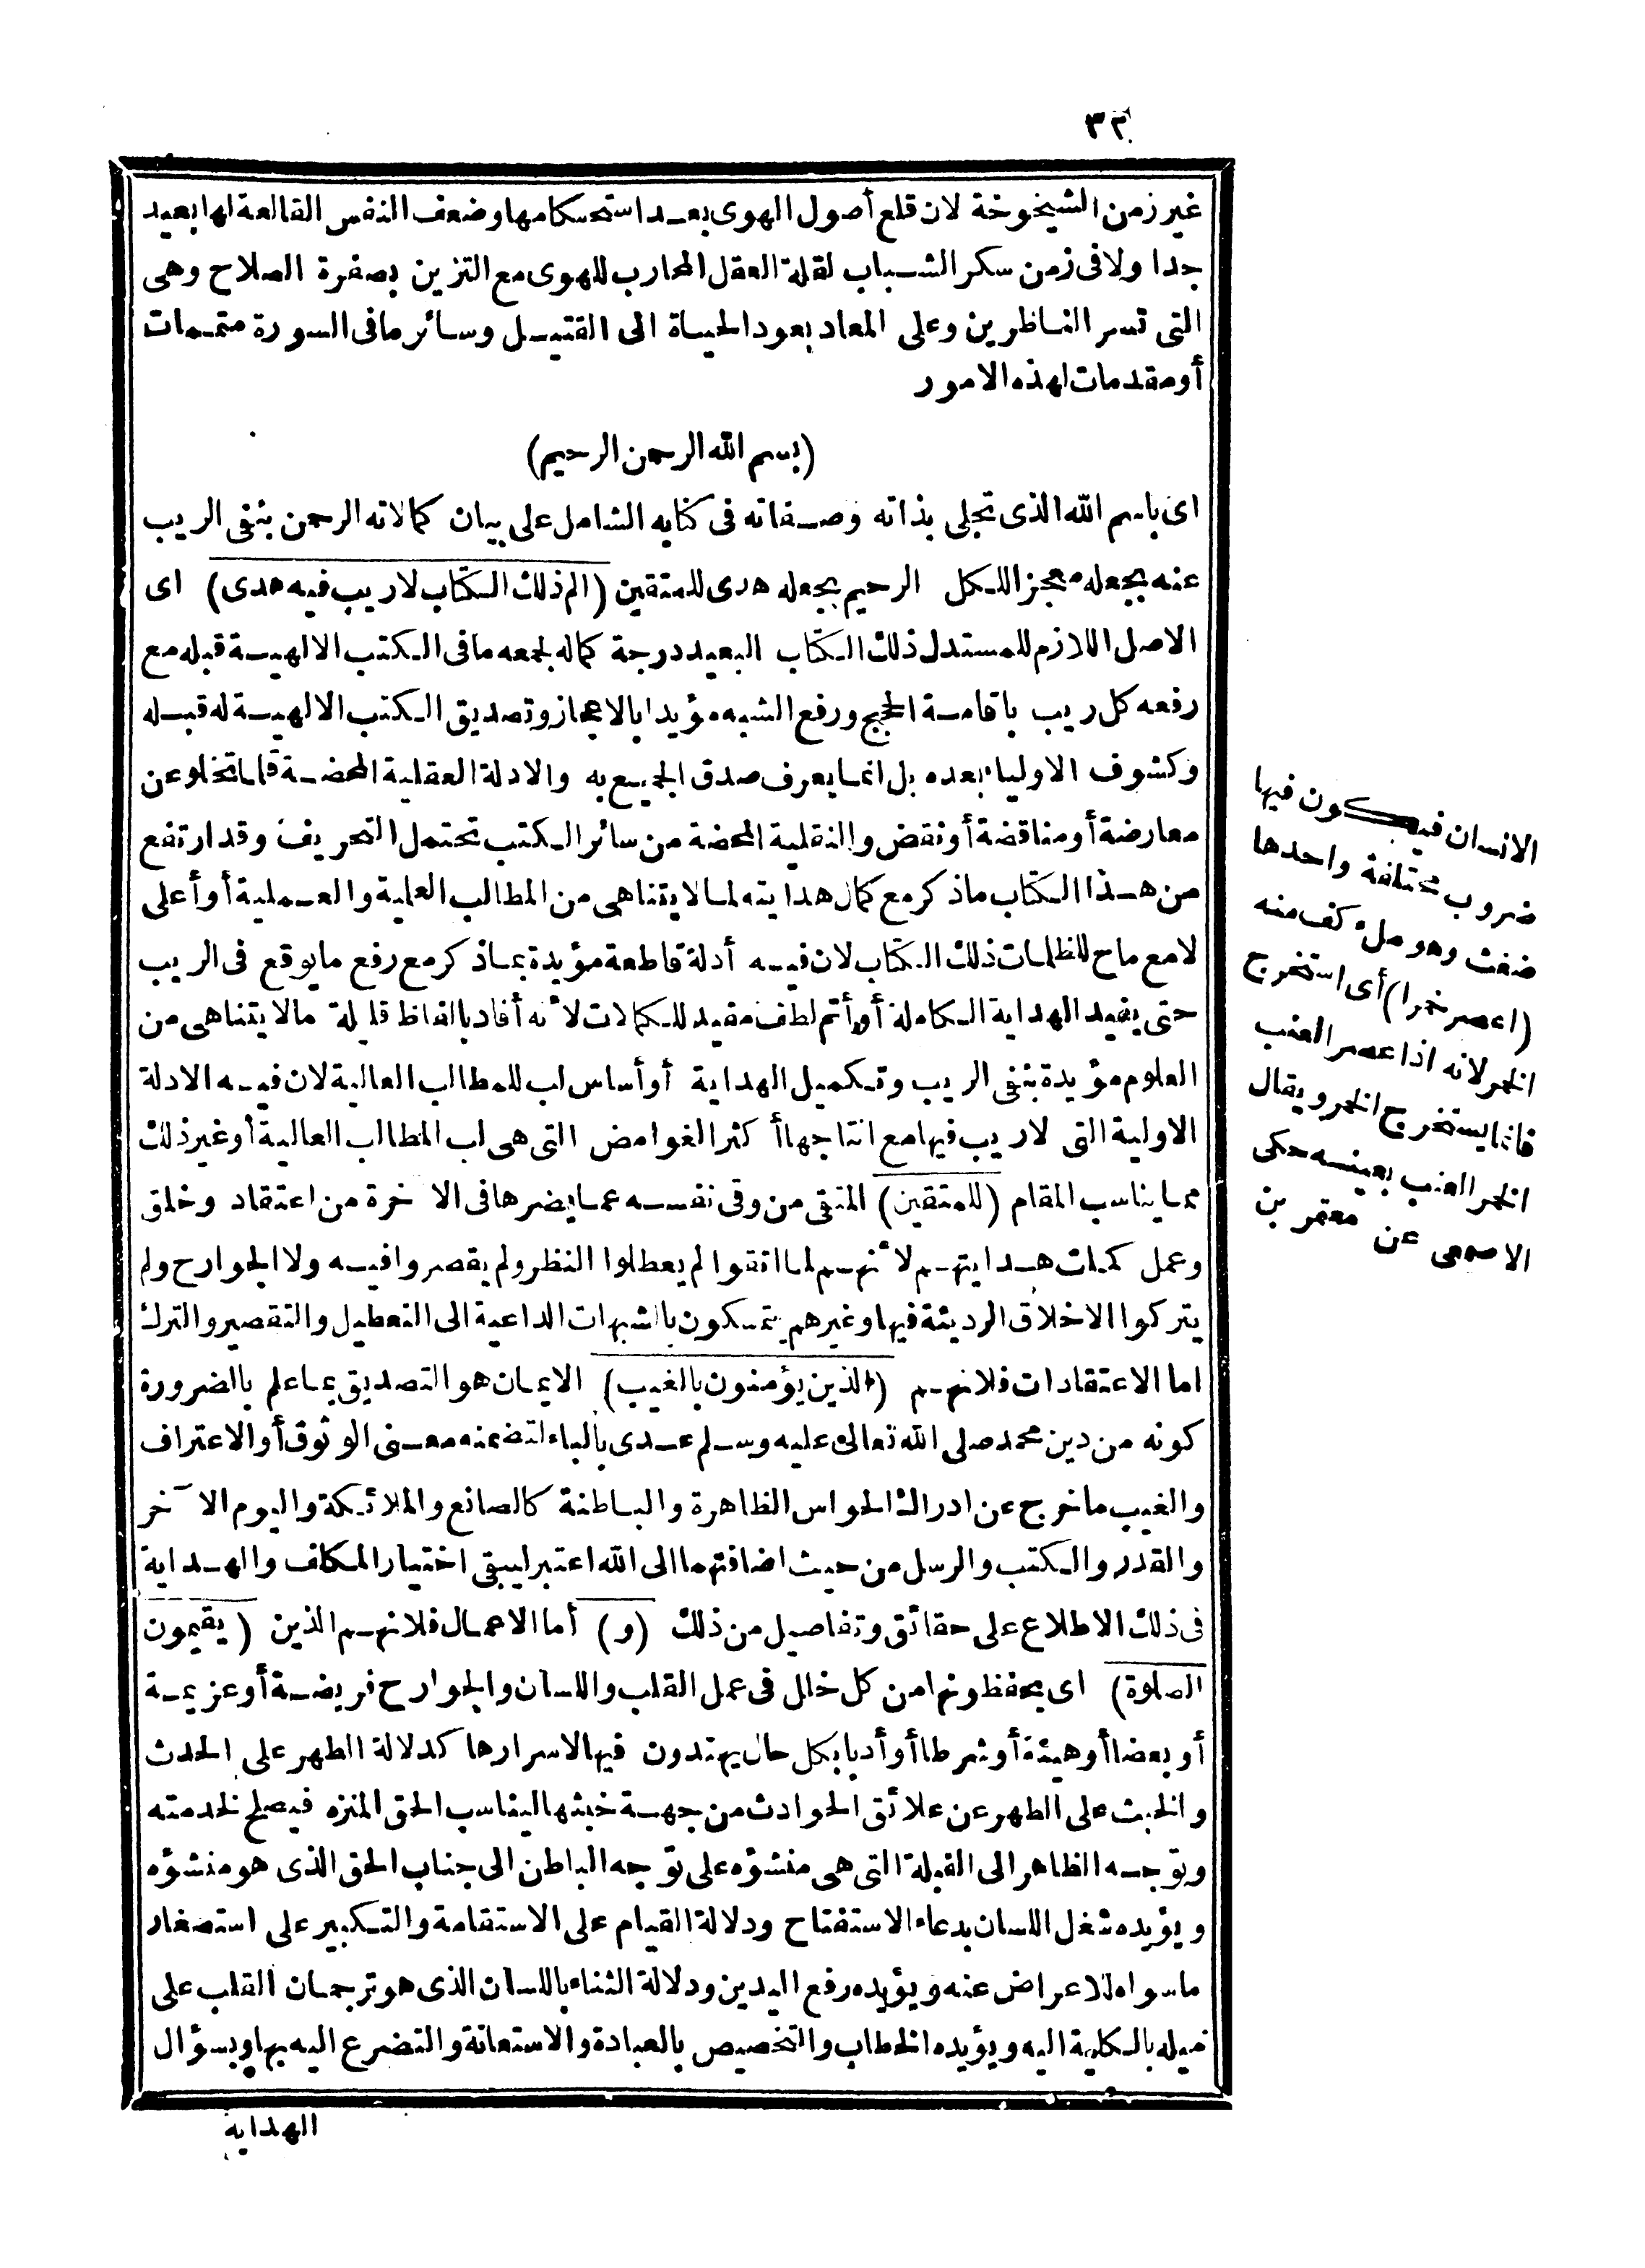 ٣٢
غير زمن الشيخوخة لان قلع أصول الهوى بعد استحكامها وضعف النفس القالعة لها بعيد
جدا ولا فى زمن سكر الشباب لقلة العقل المحارب للهوى مع التزين بصفرة الصلاح وهى
التى تسر الناظرين وعلى المعاد بعود الحياة الى القتيل وسائر ما فى السورة متممات
أو مقدمات لهذه الامور
(بسم الله الرحمن الرحيم)
اى باسم الله الذى تجلى بذاته وصفاته فى كتابه الشامل على بيان كمالاته الرحمن بنفى الريب
عنه بجعله معجز الكل الرحيم بجعله هدى للمتقين (الم ذلك الكتاب لا ريب فيه هدى) اى
الاصل اللازم للمستدل ذلك الكتاب البعيد درجة كماله لجمعه ما فى الكتب الالهية قبله مع
رفعه كل ريب باقامة الحجج ورفع الشبه مؤيدا بالاعجاز وتصديق الكتب الالهية له قبله
وكشوف الاولياء بعده بل انما يعرف صدق الجميع به والادلة العقلية المحضة قلما تخلو عن
معارضة أو مناقضة أو نقض والنقلية المحضة من سائر الكتب تحتمل التحريف وقد ارتفع
من هذا الكتاب ماذكر مع كمال هدايته لما لا يتناهى من المطالب العلمية والعملية أو أعلى
لامع ماح للظلمات ذلك الكتاب لان فيه أدلة قاطعة مؤيدة بماذكر مع رفع ما يوقع فى الريب
حتى يفيد الهداية الكاملة أو أتم لطف مفيد للكمالات لأنه أفاد بالفاظ قليلة مالا يتناهى من
العلوم مؤيدة بنفى الريب وتكميل الهداية أو أساس لب للمطالب العالية لان فيه الادلة
الاولية التى لا ريب فيها مع انتاجها أكثر الغوامض التى هى لب المطالب العالية أو غير ذلك
مما يناسب المقام (للمتقين) المتقى من وقى نفسه عما يضرها فى الآخرة من اعتقاد وخلق
وعمل كملت هدايتهم لأنهم لما اتقوا لم يعطلوا النظر ولم يقصروا فيه ولا الجوارح ولم
يتركوا الاخلاق الرديئة فيها وغيرهم يتمسكون بالشبهات الداعية الى التعطيل والتقصير والترك
اما الاعتقادات فلانهم (الذين يؤمنون بالغيب) الايمان هو التصديق بما علم بالضرورة
كونه من دين محمد صلى الله تعالى عليه وسلم عدى بالباء لتضمنه معنى الوثوق أو الاعتراف
والغيب ما خرج عن ادراك الحواس الظاهرة والباطنة كالصانع والملائكة واليوم الآخر
والقدر والكتب والرسل من حيث اضافتهما الى الله اعتبر ليبقى اختيار المكلف والهداية
فى ذلك الاطلاع على حقائق وتفاصيل من ذلك (و) أما الاعمال فلانهم الذين (يقيمون
الصلوة) اى يحفظونها من كل خلل فى عمل القلب واللسان والجوارح فريضة أو عزيمة
أو بعضا أو هيئة أو شرطا أو أدبا بكل حال يهتدون فيها الاسرارها كدلالة الطهر على الحدث
والخبث على الطهر عن علائق الحوادث من جهة خبثها اليناسب الحق المنزه فيصلح لخدمته
وتوجه الظاهر الى القبلة التى هى منشؤه على توجه الباطن الى جناب الحق الذى هو منشؤه
ويؤيده شغل اللسان بدعاء الاستفتاح ودلالة القيام على الاستقامة والتكبير على استصغار
ما سواه للاعراض عنه ويؤيده رفع اليدين ودلالة الثناء باللسان الذى هو ترجمان القلب على
ميله بالكلية اليه ويؤيده الخطاب والتخصيص بالعبادة والاستعانة والتضرع اليه بها وبسؤال
الهداية
الانسان فيكون فيها
ضروب مختلفة واحدها
ضغث وهو ملء كف منه
(اعصر خمرا) أى استخرج
الخمر لانه اذا عصر العنب
فانما يستخرج الخمر ويقال
الخمر العنب بعينه حكى
الاصمعى عن معتمر بن